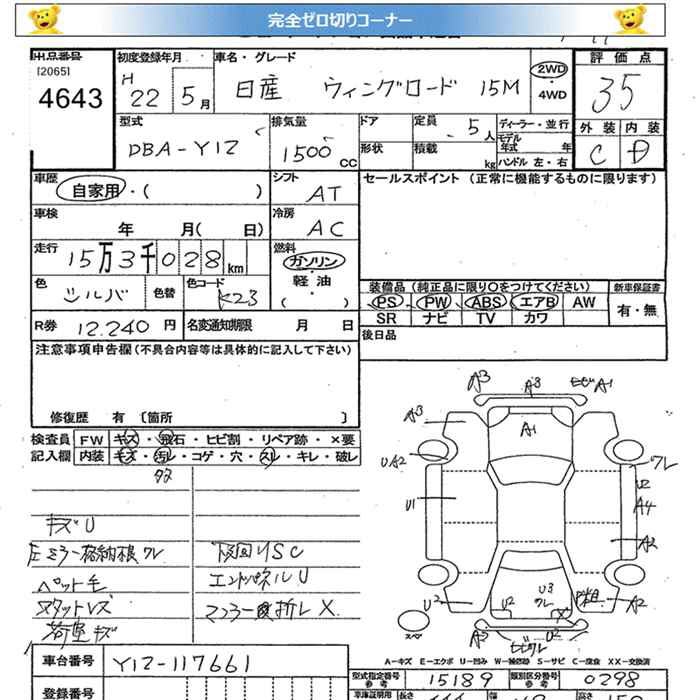 完全ゼロ切りコーナー
出品番号
[2065]
4643
初度登録年月
H 22 5月
車名・グレード
日産 ウィングロード 15M
2WD
・4WD
評価点
35
外装 内装
C D
型式
DBA-Y12
排気量
1500 CC
ドア
形状
定員 5人
積載 kg
ディーラー・並行
モデル年式 年
ハンドル 左・右
車歴
自家用・( )
シフト
AT
セールスポイント (正常に機能するものに限ります)
車検
年 月( 日)
冷房
AC
走行
15万3千028km
燃料
ガソリン
・軽油
( )
色
シルバ
色替
色コード
K23
装備品 (純正品に限り○をつけてください)
新車保証書
PS PW ABS エアB AW
SR ナビ TV カワ
有・無
R券 12,240円
名変通知期限 月 日
後日品
注意事項申告欄(不具合内容等は具体的に記入して下さい)
修復歴 有 〔箇所 〕
検査員記入欄
FW キズ・飛石・ヒビ割・リペア跡・×要
内装 キズ・汚れ・コゲ・穴・スレ・キレ・破レ
キズU
ペット毛
荷室キズ
下回りSC
エンドパネルU
A3 A3 A1
A3 A1
UA2 ワレ
U1 U2
A4
A2
U2 U2 U3 ワレ A2
A3 U2
スペア
A-キズ E-エクボ U-凹み W-補修跡 S-サビ C-腐食 XX-交換済
車台番号 Y12-117661
型式指定番号 参考 15189
類別区分番号 参考 0298
登録番号
車庫証明用 長さ